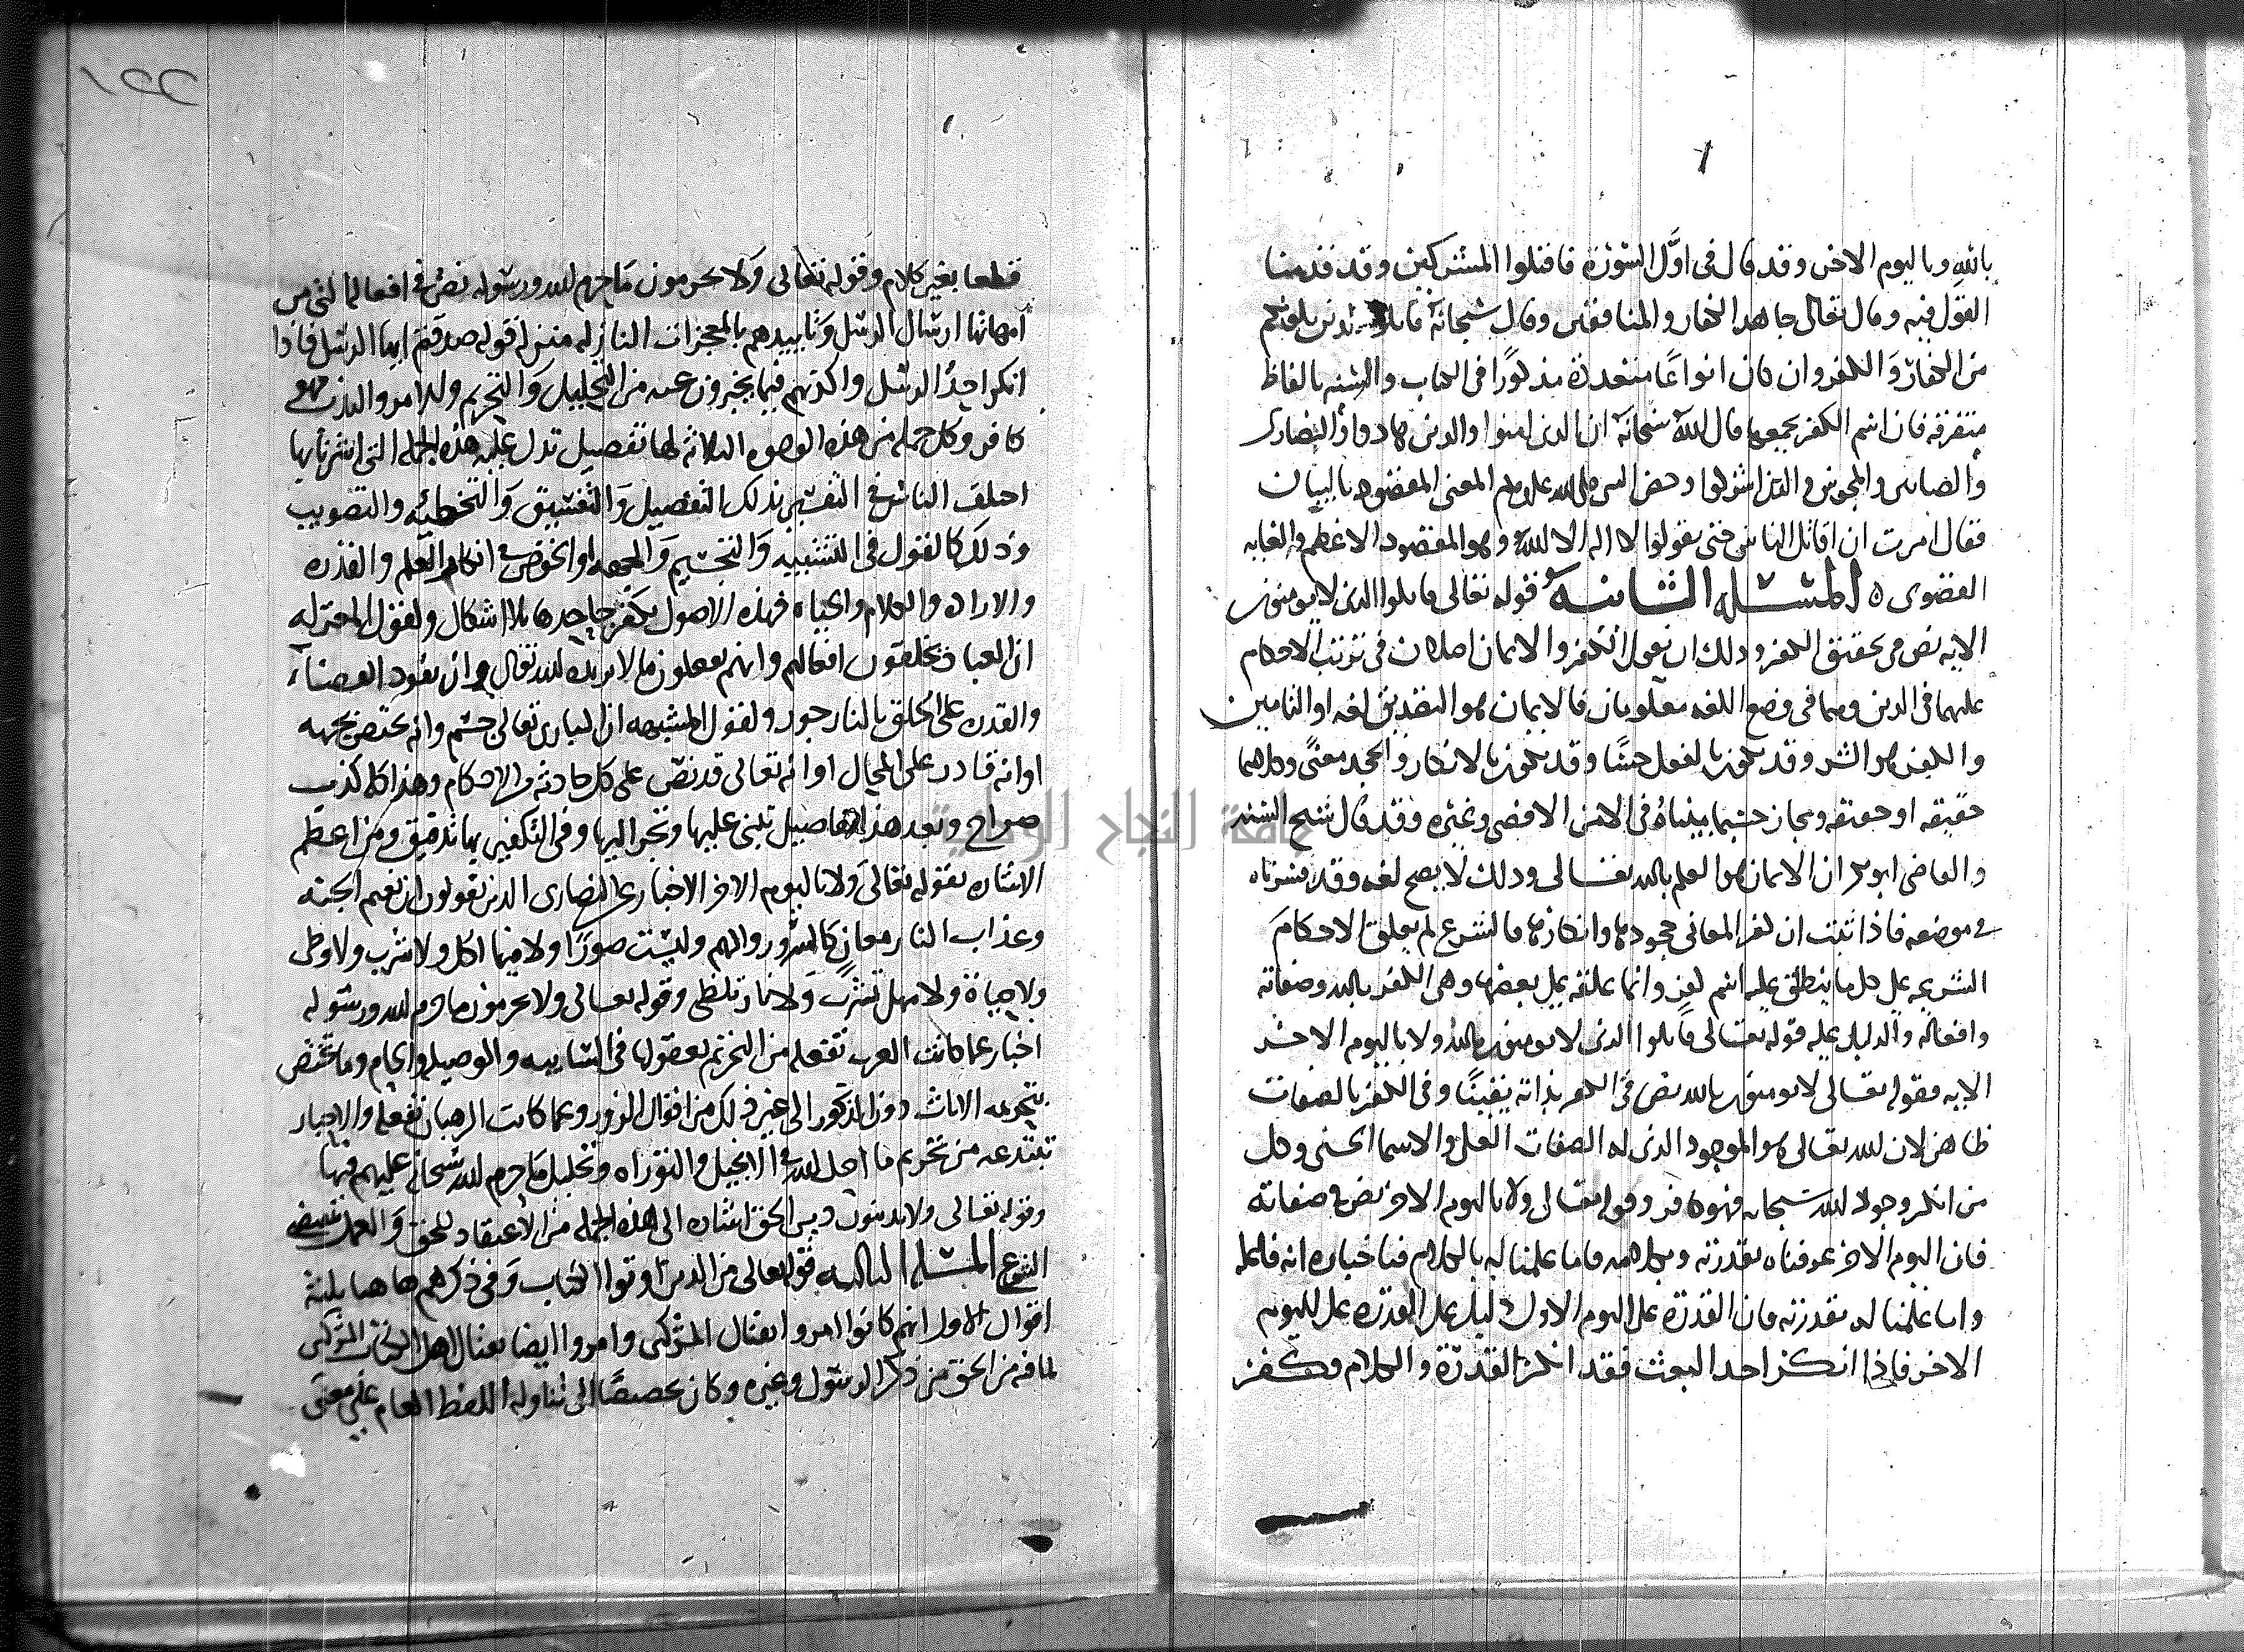 بالله وباليوم الاخر وقد قال في اول السورة فاقتلوا المشركين وقد قدمنا
القول فيه وقال تعالى جاهد الكفار والمنافقين وقال سبحانه قاتلوا الذين يلونكم
من الكفار والكفر وان كان انواعا متعددة مذكورا في الكتاب والسنه بالفاظ
متفرقه فان اسم الكفر يجمعها قال الله سبحانه ان الذين امنوا والذين هادوا والنصارى
والصابين والمجوس والذين اشركوا وخص النبي صلى الله عليه وسلم المعنى المقصود بالبيان
فقال امرت ان اقاتل الناس حتى يقولوا لا اله الا الله وهو المقصود الاعظم والغايه
القصوى ه المسله الثانيه قوله تعالى قاتلوا الذين لا يومنون
الايه نص في تحقيق الكفر وذلك ان نقول ان الكفر والايمان اصلان في ترتيب الاحكام
عليهما في الدين وهما في وضع اللغه معلومان فالايمان هو التصديق لغه او التامين
والكفر هو الستر وقد يكون بالفعل حسا وقد يكون بالانكار والجحد معنى وكلاهما
حقيقه او حقيقه ومجاز حسبما بيناه في الامد الاقصى وغيره وقد قال شيخ السنه
والقاضي ابو بكر ان الايمان هو العلم بالله تعالى وذلك لا يصح لغه وقد بيناه
في موضعه فاذا ثبت ان كفر المعاني جحودها وانكارها فالشرع لم يعلق الاحكام
الشرعيه على كل ما ينطلق عليه اسم كفر وانما علقه على بعضها وهي الكفر بالله وصفاته
وافعاله والدليل عليه قوله تعالى قاتلوا الذين لا يومنون بالله ولا باليوم الاخر
الايه فقوله تعالى لا يومنون بالله نص في الكفر بذاته يقينا وفي الكفر بالصفات
ظاهر لان الله تعالى هو الموجود الذي له الصفات العلى والاسما الحسنى وكل
من انكر وجود الله سبحانه فهو كافر وقوله تعالى ولا باليوم الاخر نص في صفاته
فان اليوم الاخر عرفناه بقدرته وبكلامه فاما علمنا له بالكلام فباخباره انه فاعله
واما علمنا له بقدرته فان القدرة على اليوم الاول دليل على القدرة على اليوم
الاخر فاذا انكر احد البعث فقد انكر القدرة والكلام وكفر
قطعا بغير كلام وقوله تعالى ولا يحرمون ما حرم الله ورسوله نص في افعاله التي من
امهاتها ارسال الرسل وتاييدهم بالمعجزات النازله منزلة قوله صدقتم ايها الرسل فاذا
انكر احد الرسل او كذبهم فيما يخبرون عنه من التحليل والتحريم والاوامر والندب فهو
كافر وكل جمله من هذه الوجوه الثلاثه لها تفصيل تدل عليه هذه الجمله التي اشرنا بها
اختلف الناس في التكفير بذلك التفصيل والتفسيق والتخطئه والتصويب
وذلك كالقول في التشبيه والتجسيم والجهه او الخوض في انكار العلم والقدره
والاراده والكلام والحياه فهذه الاصول يكفر جاحدها بلا اشكال وكقول المعتزله
ان العباد يخلقون افعالهم وانهم يفعلون ما لا يريده الله تعالى وان نفوذ القضاء
والقدر على الخلق بالنار جور وكقول المشبهه ان الباري تعالى جسم وانه يختص بجهه
او انه قادر على المحال او انه تعالى قد نص على كل حادثه من الاحكام وهذا كله كذب
صراح وبعد هذا تفاصيل تبنى عليها وتجر اليها وفي التكفير بها تدقيق ومن اعظم
الاشاره بقوله تعالى ولا باليوم الاخر الاخبار عن النصارى الذين يقولون ان نعيم الجنه
وعذاب النار معان كالسرور والهم وليست صورا ولا فيها اكل ولا شرب ولا وطي
ولا حياة ولا مهل تشرب ولا نار تلظى وقوله تعالى ولا يحرمون ما حرم الله ورسوله
اخبار عما كانت العرب تفعله من التحريم بعقولها في السايبه والوصيله والحام وما تختص
بتحريمه الاناث دون الذكور الى غير ذلك من اقوال الزور وعما كانت الرهبان تفعله والاحبار
تبتدعه من تحريم ما احل الله في الانجيل والتوراه وتحليل ما حرم الله سبحانه عليهم فيها
وقوله تعالى ولا يدينون دين الحق اشاره الى هذه الجمله من الاعتقاد للحق والعمل بمقتضى
الشرع المسله الثالثه قوله تعالى من الذين اوتوا الكتاب وفي ذكرهم هاهنا ثلثة
اقوال الاول انهم كانوا امروا بقتال المشركين وامروا ايضا بقتال اهل الكتاب المشركين
لما فيه من الحق من ذكر الرسول وغيره وكان تخصيصا الى تناوله اللفظ العام على معنى